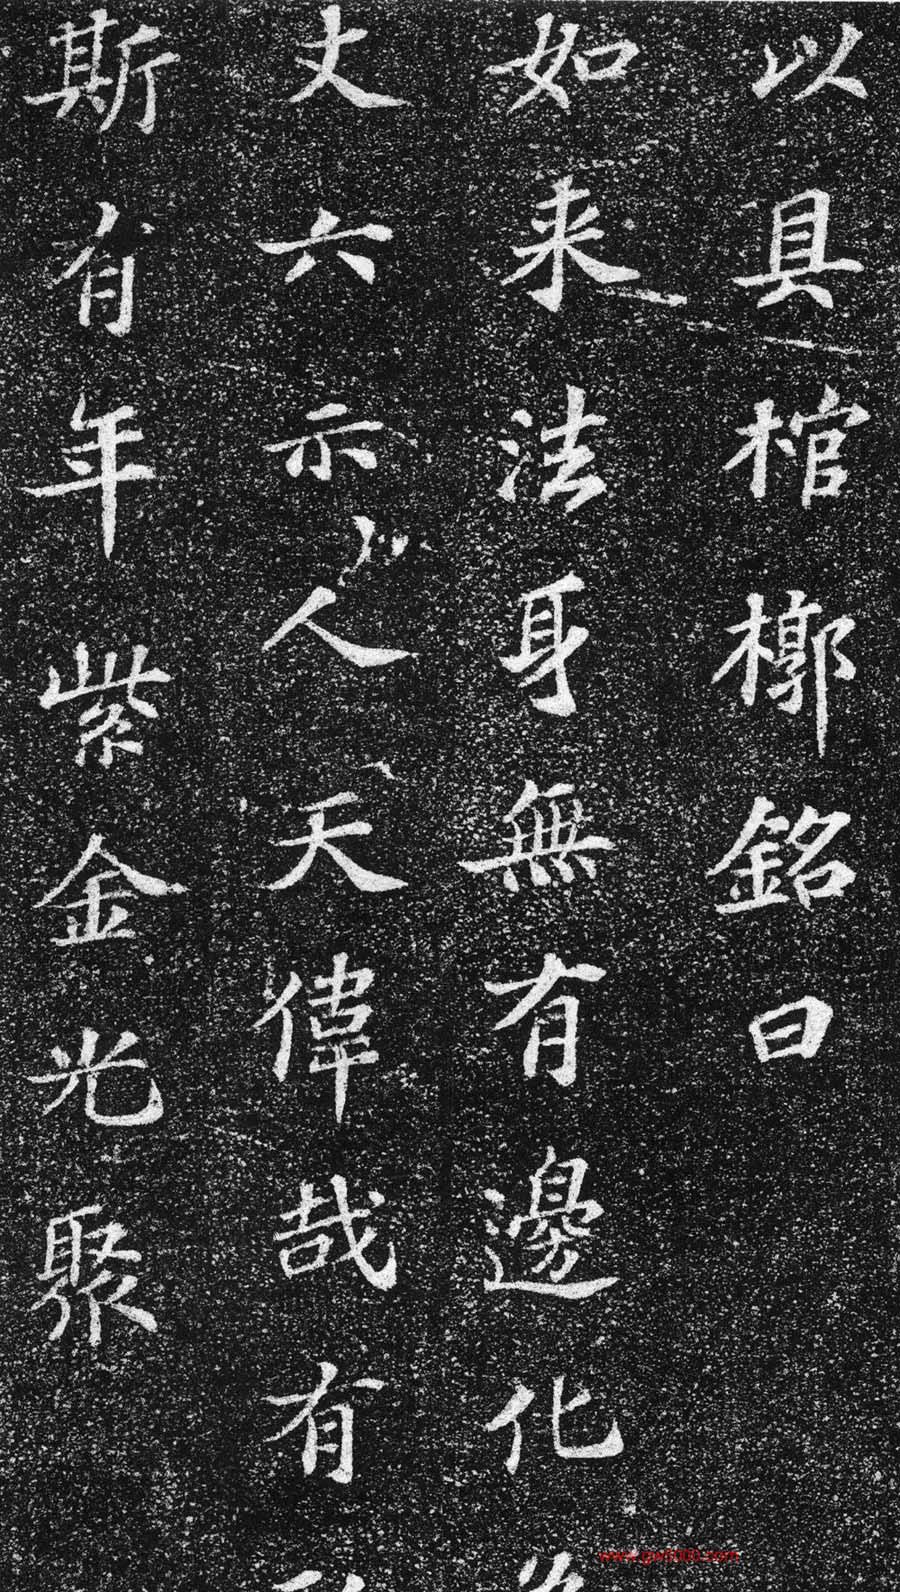 以具棺槨銘曰
如来法身無有邊化
丈六示人天偉哉有
斯有年紫金光聚
www.gw8000.com